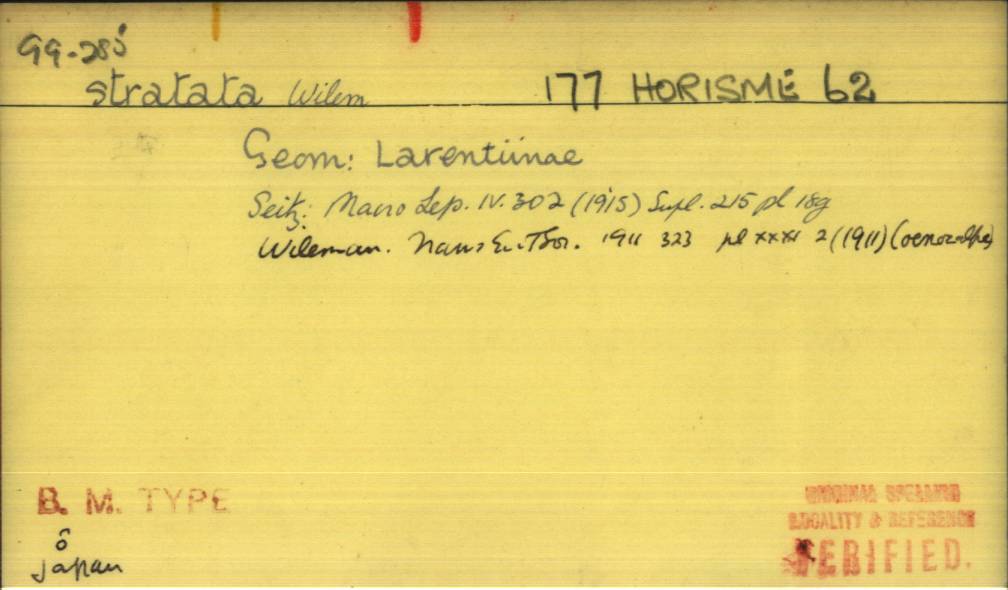 GG-285
stratata Wilem 177 HORISME 62
Geom: Larentiinae
Seitz: Macro Lep. IV. 302 (1915) Supl. 215 pl 18g
Wileman. Trans Ent Soc. 1911 323 pl xxxi 2 (1911)
B. M. TYPE
Japan
ORIGINAL SPELLING
LOCALITY & REFERENCE
VERIFIED.